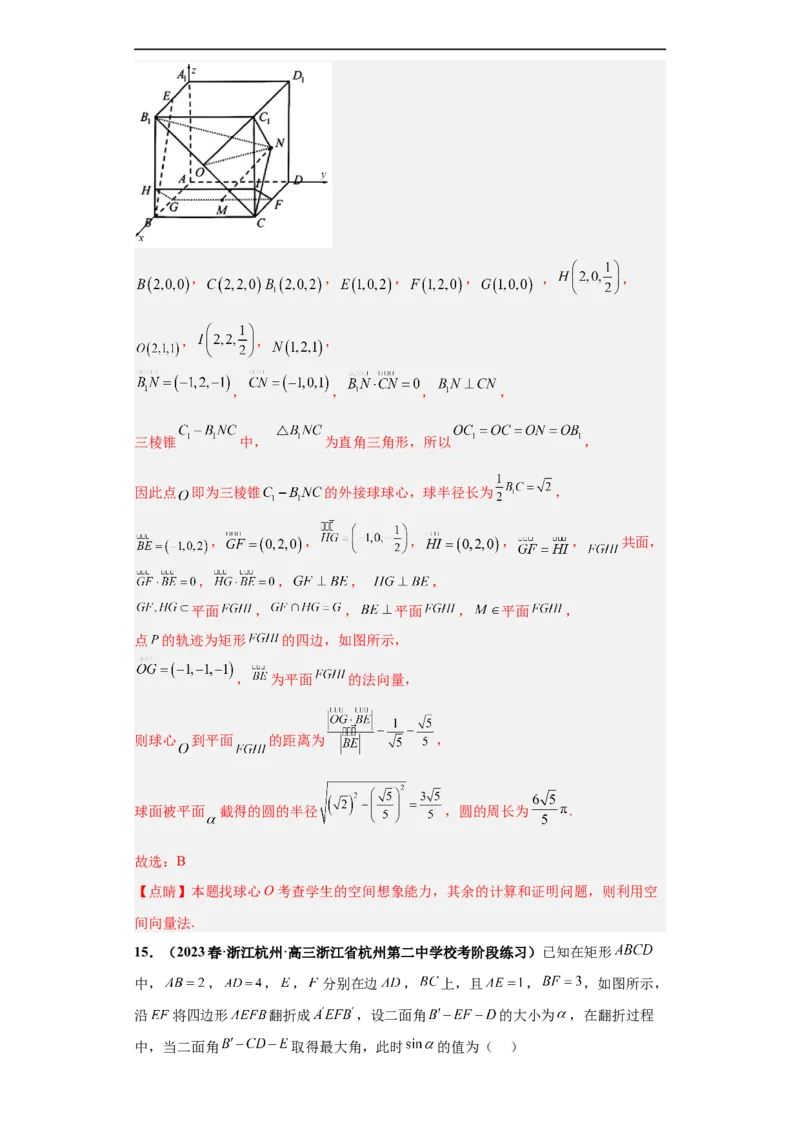 A₁ z D₁
E
B₁ C₁
N
O
A D y
H
G M F
B C
x
B(2,0,0), C(2,2,0) B₁(2,0,2), E(1,0,2), F(1,2,0), G(1,0,0), H(2,0,1/2),
O(2,1,1), I(2,2,1/2), N(1,2,1),
B₁N=(−1,2,−1), CN=(−1,0,1), B₁N·CN=0, B₁N⊥CN,
三棱锥C₁−B₁NC中, △B₁NC为直角三角形，所以OC₁=OC=ON=OB₁,
因此点O即为三棱锥C₁−B₁NC的外接球球心，球半径长为1/2 B₁C=√2,
BE=(−1,0,2), GF=(0,2,0), HG=(−1,0,−1/2), HI=(0,2,0), GF=HI, FGHI 共面,
GF·BE=0, HG·BE=0, GF⊥BE, HG⊥BE,
GF,HG⊂平面FGHI, GF∩HG=G, BE⊥平面FGHI, M∈平面FGHI,
点P的轨迹为矩形FGHI的四边，如图所示，
OG=(−1,−1,−1), BE为平面FGHI的法向量，
则球心O到平面FGHI的距离为|OG·BE|/|BE|=1/√5=√5/5,
球面被平面α截得的圆的半径√((√2)²−(√5/5)²)=3√5/5, 圆的周长为6√5/5 π.
故选：B
【点睛】本题找球心O考查学生的空间想象能力，其余的计算和证明问题，则利用空
间向量法.
15．（2023春·浙江杭州·高三浙江省杭州第二中学校考阶段练习）已知在矩形ABCD
中，AB=2，AD=4，E，F分别在边AD，BC上，且AE=1，BF=3，如图所示，
沿EF将四边形AEFB翻折成A′EFB′，设二面角B′−EF−D的大小为α，在翻折过程
中，当二面角B′−CD−E取得最大角，此时sinα的值为（ ）